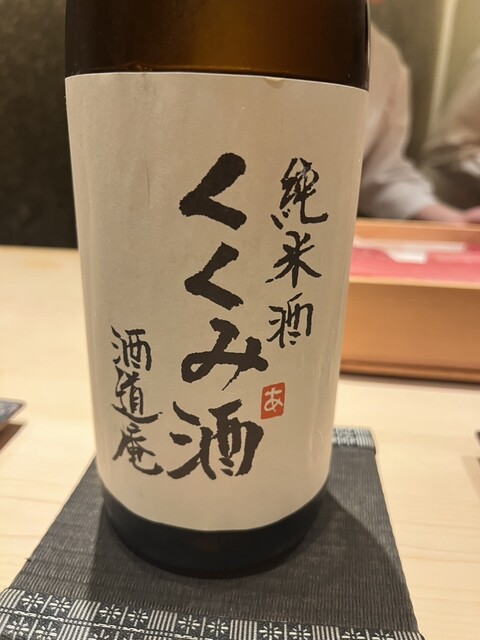 純米酒
くくみ酒
あ
酒道庵